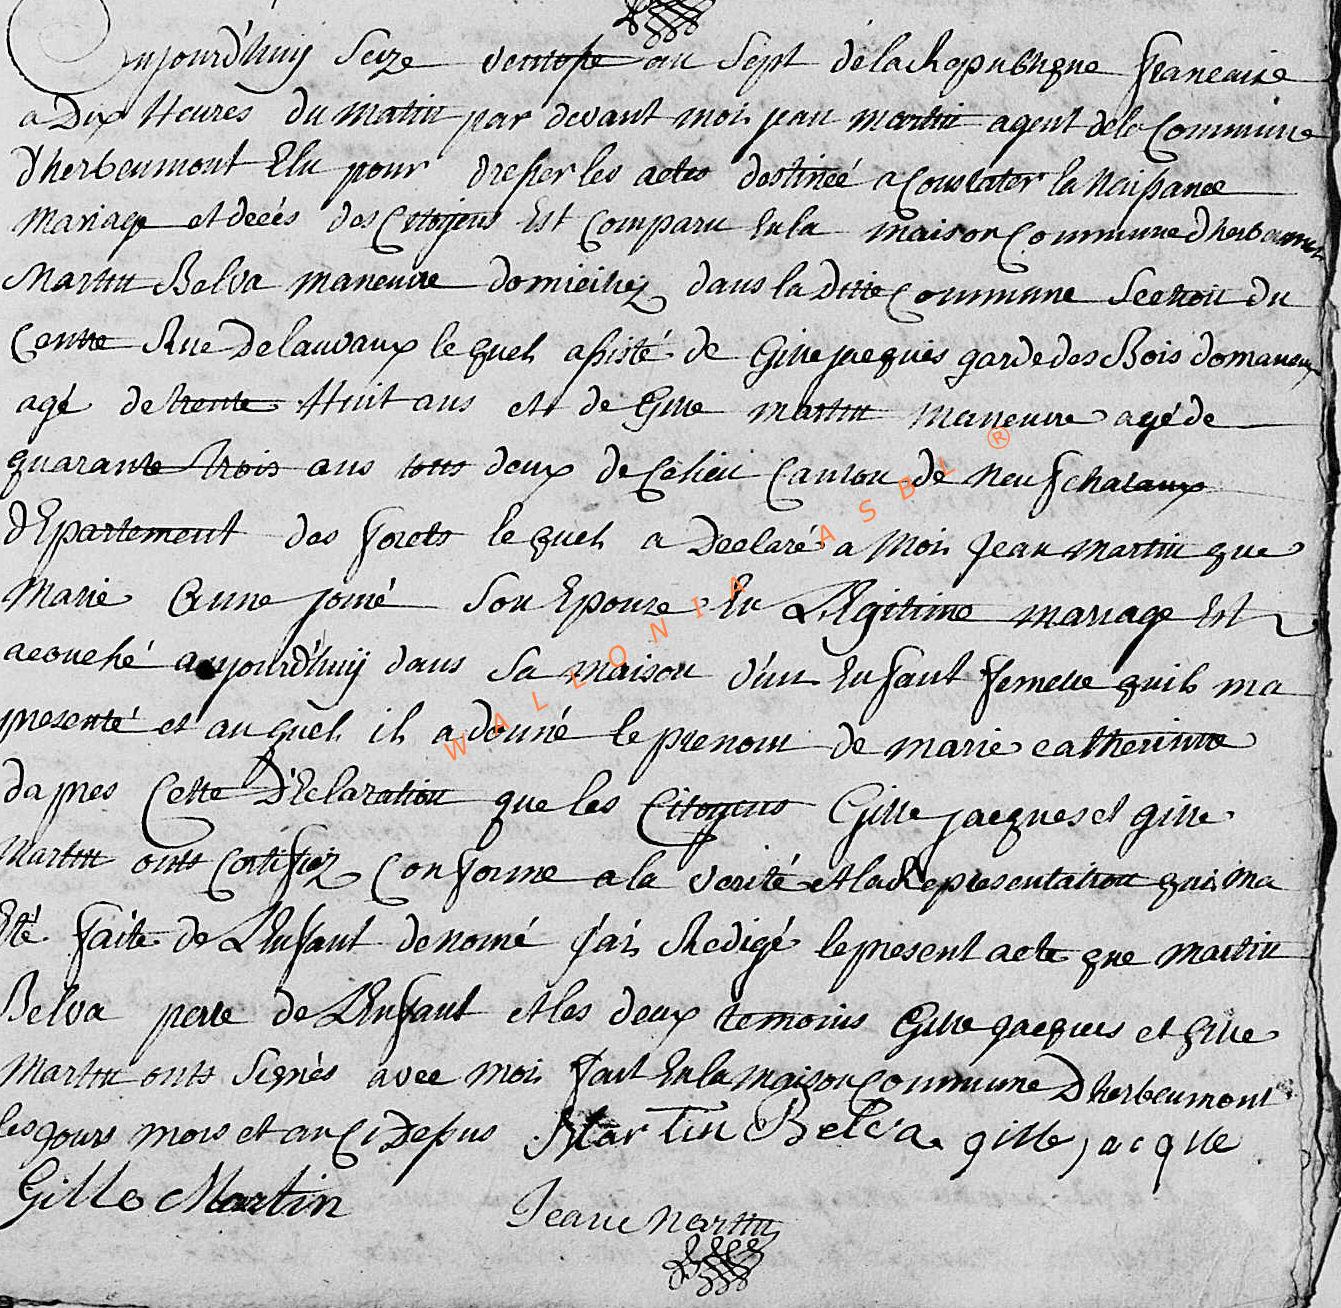 Aujourd'huij Seize ventose an Sept de la Republique francaise
a Dix Heures du matin par devant moi jean martin agent de la Commune
d'herbeumont Elu pour dresser les actes destinéé a Constater la Naissance
Mariage et décés des Citoijens Est Comparu en la maison Commune d'herbeumont
Martin Belva maneuvre domicihez dans la Ditte Commune Section du
Centre Rue Delauvaux le quel assisté de Gille jacques garde des Bois domaneaux
agé de trente Huit ans et de Gille martin maneuvre agé de
quarante trois ans tous deux de Ce lieu Canton de neufchataux
dEpartement des forets le quel a Declaré a Moi Jean martin que
Marie Anne joiné Son Epouze En LEgitime mariage Est
acouché aujourd'huij dans Sa maison d'un Enfant femelle quil ma
presenté et au quel il a donné le prenom de marie catherinne
dapres Cette DEclaration que les Citoyens Gille jacques et gille
Martin onts Certifiez Conforme a la verité et la Representation qui ma
Eté faite de LEnfant denomé j'ai Redigé le present acte que martin
Belva perre de LEnfant et les deux temoins Gille jacques et gille
Martin onts Signés avec moi fait En la maison Commune Dherbeumont
les jours mois et an Ci Desus Martin Belva gille jacque
Gille Martin Jean Martin
WALLONIA ASBL ®